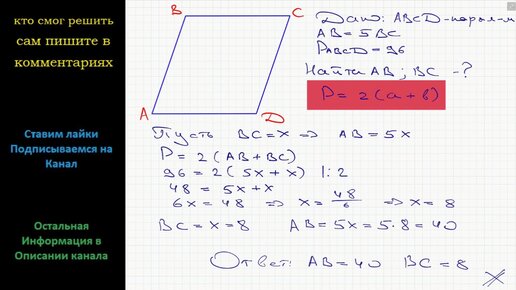 кто смог решить
сам пишите в
комментариях
Ставим лайки
Подписываемся на
Канал
Остальная
Информация в
Описании канала
B
C
A
D
Дано: ABCD - парал-м
AB = 5BC
PABCD = 96
Найти AB ; BC - ?
P = 2(a + b)
Пусть BC = x ⇒ AB = 5x
P = 2(AB + BC)
96 = 2(5x + x) |:2
48 = 5x + x
6x = 48 ⇒ x = 48/6 ⇒ x = 8
BC = x = 8 AB = 5x = 5·8 = 40
Ответ: AB = 40 BC = 8